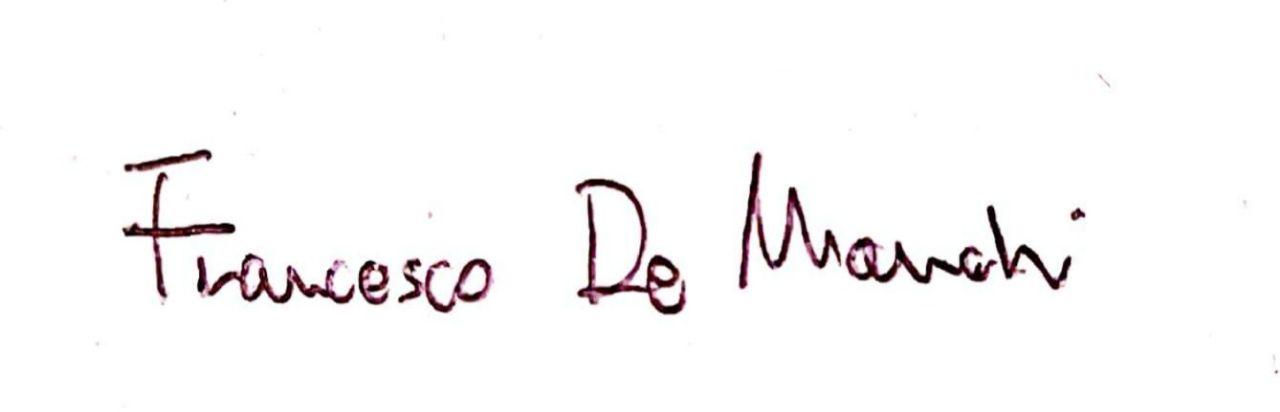 Francesco De Marchi